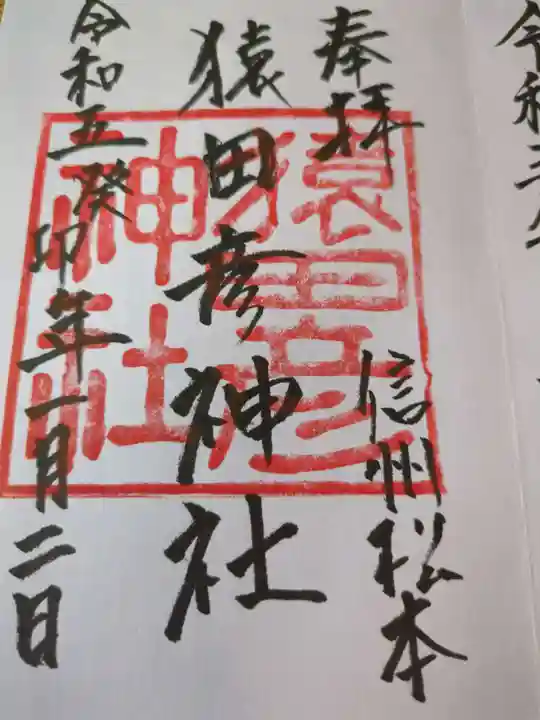 奉拝
信州松本
猿田彦神社
令和五癸卯年一月二日
猿田彦
神社
令和三年